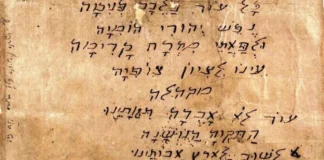 כל עוד בלבב פנימה
נפש יהודי הומיה
ולפאתי מזרח קדימה
עינו לציון צופיה
מקהלה
עוד לא אבדה תקותנו
התקוה הנושנה
לשוב לארץ אבותינו